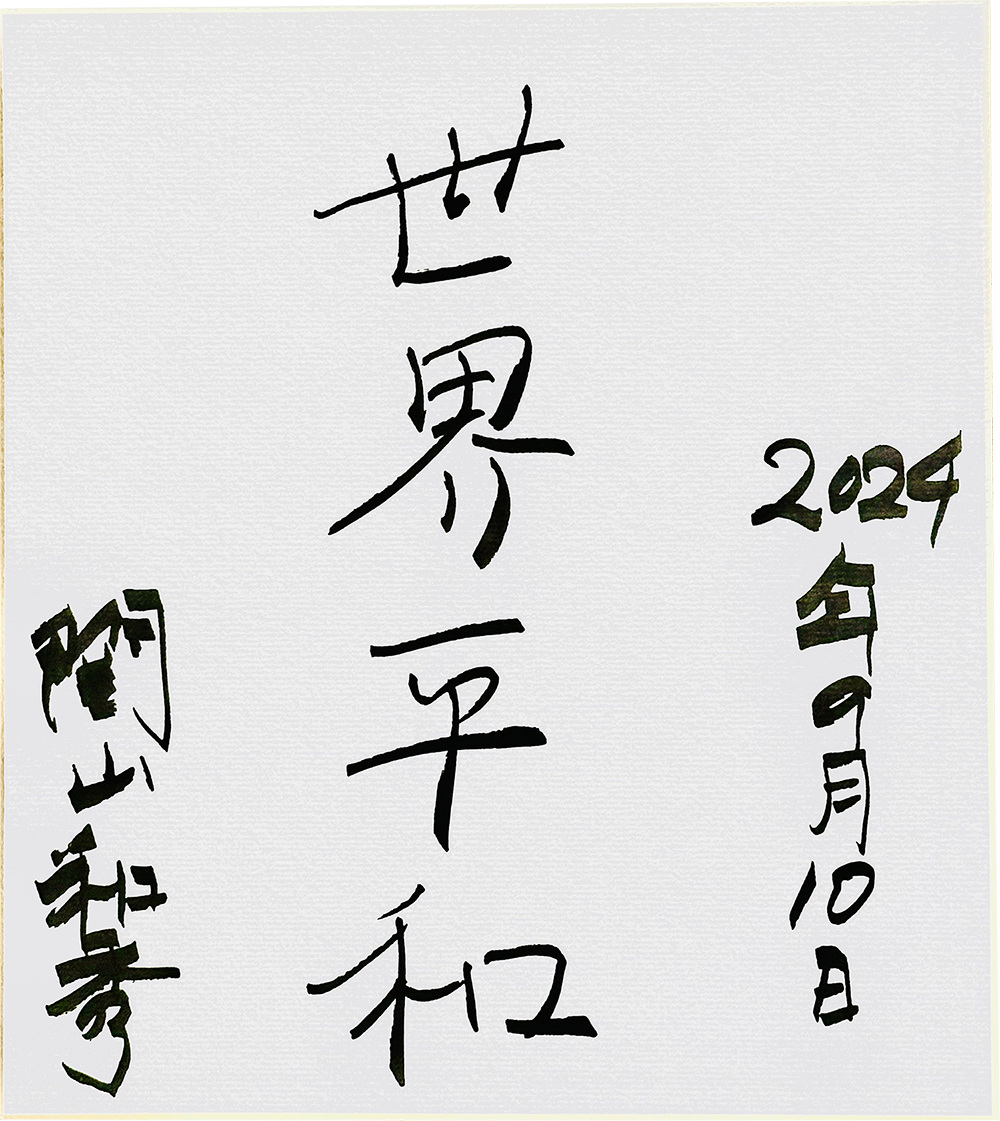 2024年9月10日
世界平和
関山和秀